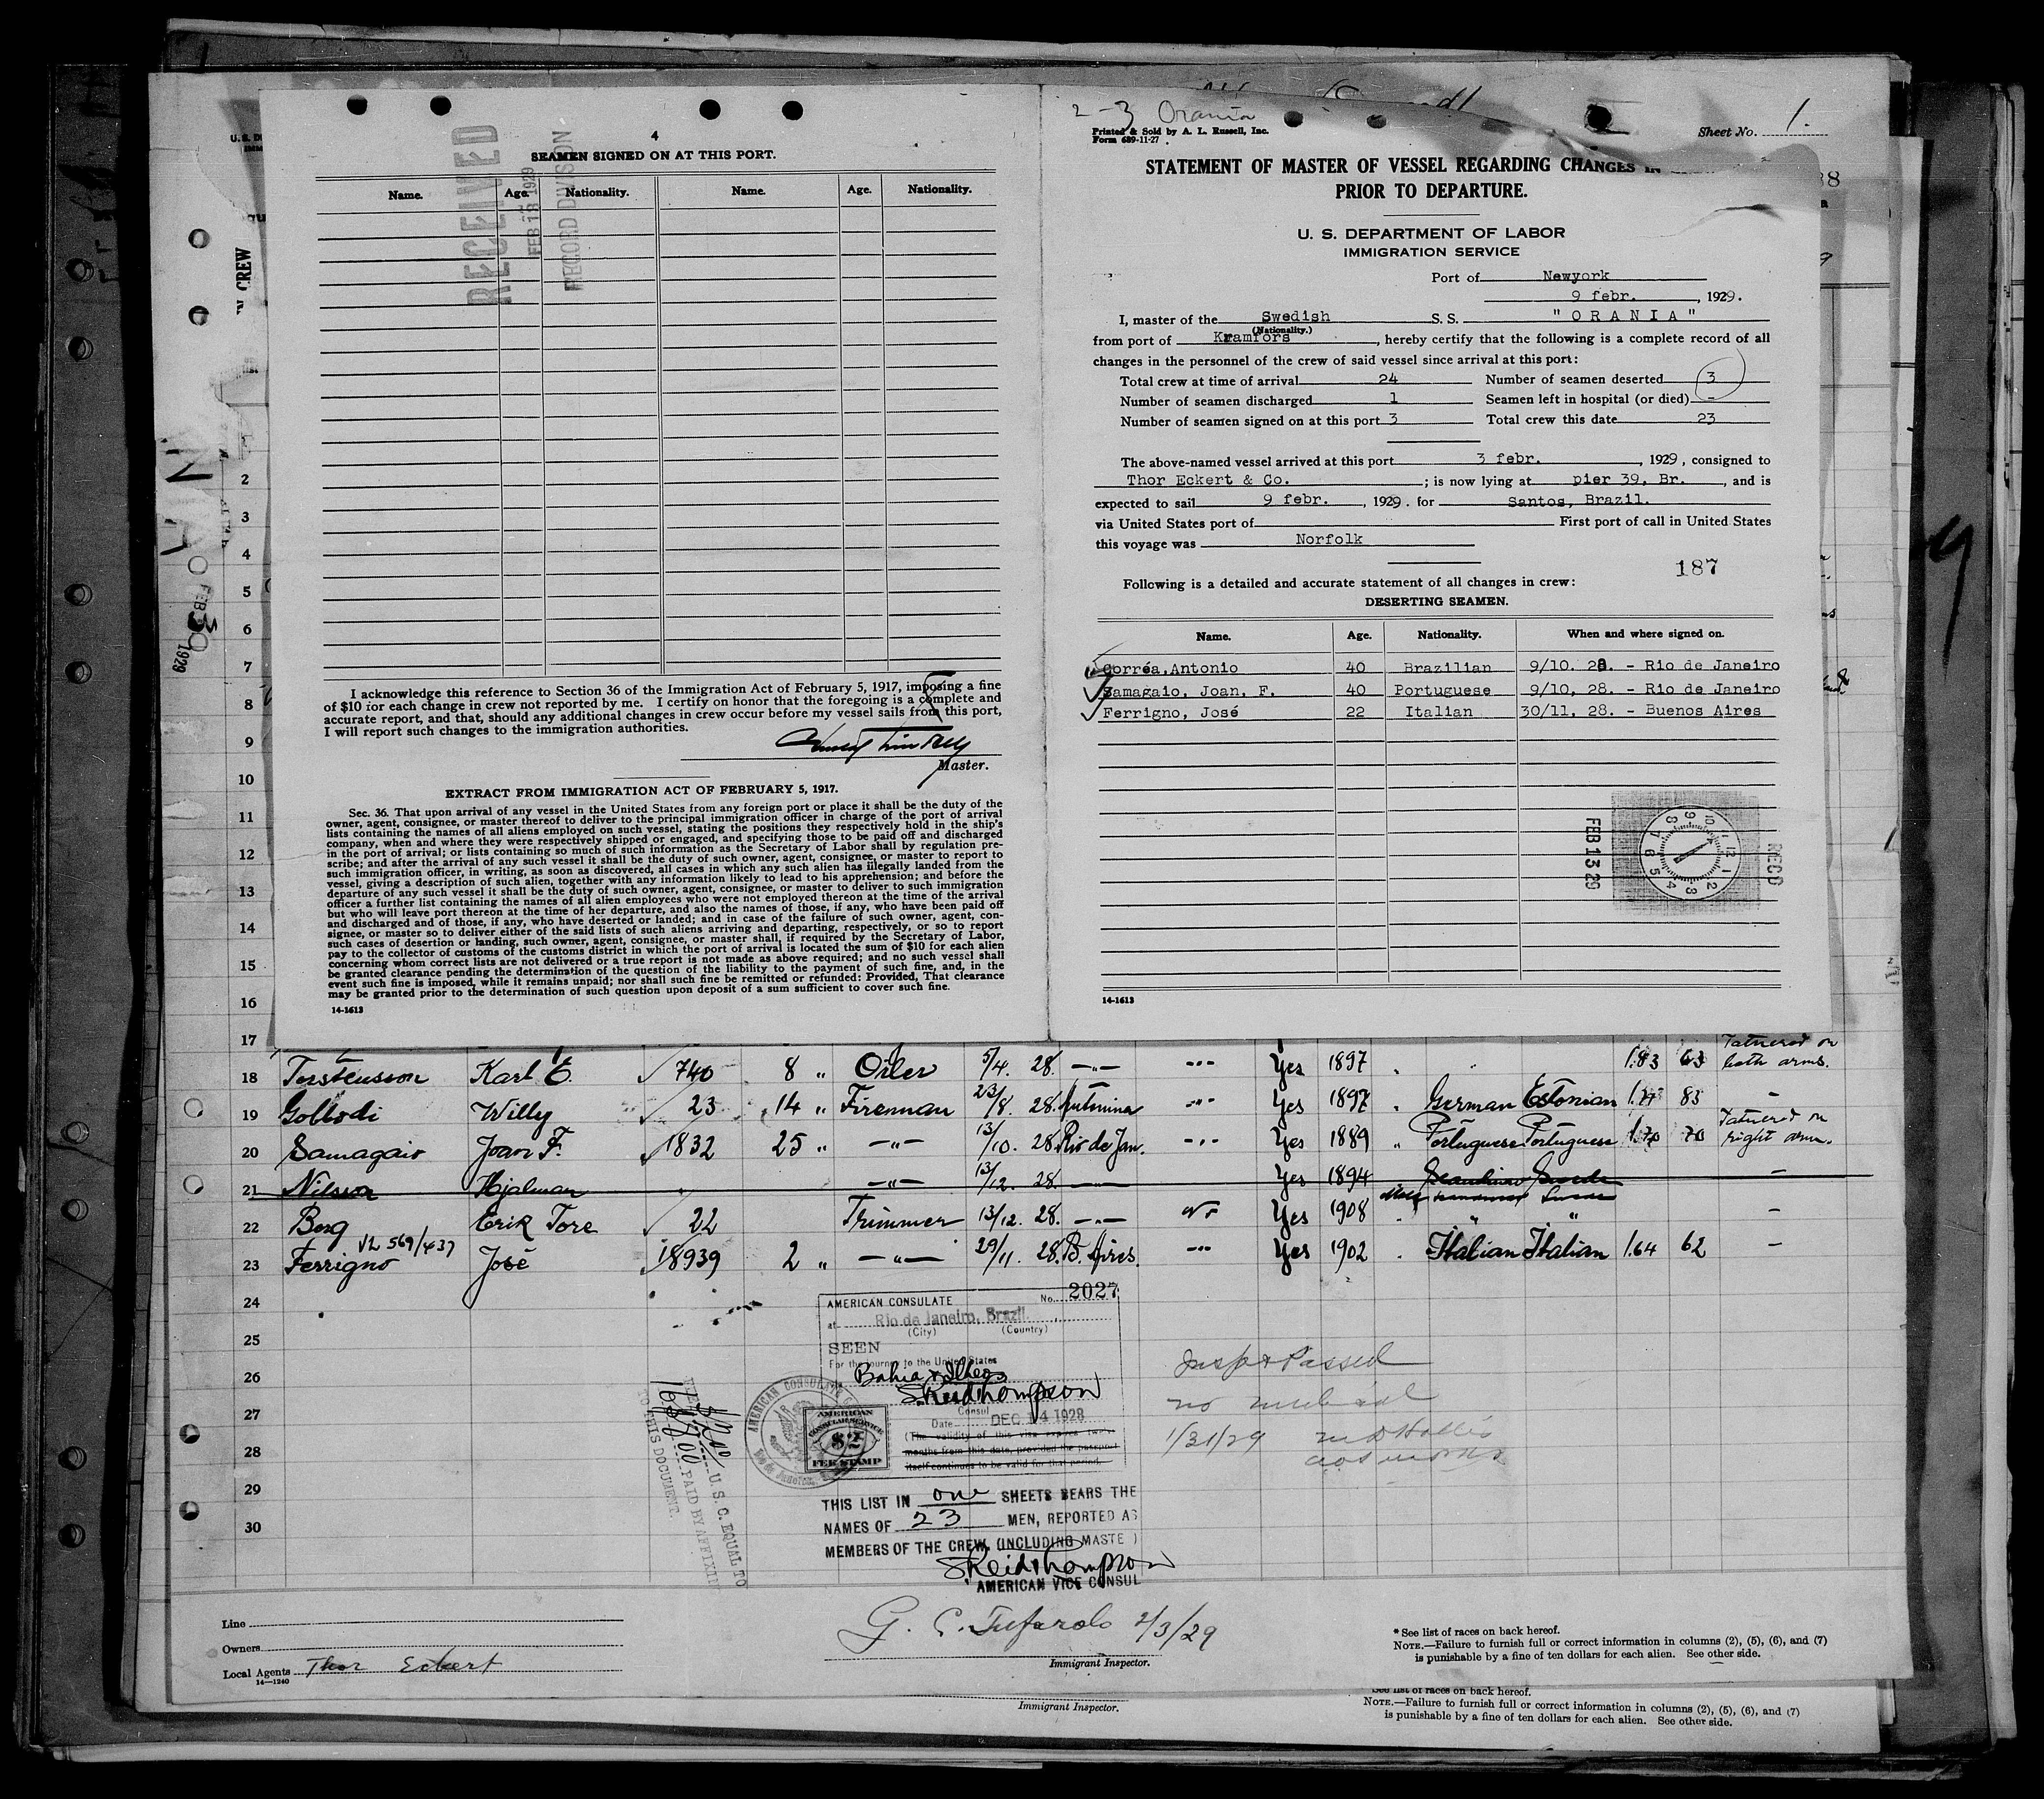 4
SEAMEN SIGNED ON AT THIS PORT.
Name. Age. Nationality. Name. Age. Nationality.
RECEIVED
FEB 13 1929
RECORD DIVISION
I acknowledge this reference to Section 36 of the Immigration Act of February 5, 1917, imposing a fine
of $10 for each change in crew not reported by me. I certify on honor that the foregoing is a complete and
accurate report, and that, should any additional changes in crew occur before my vessel sails from this port,
I will report such changes to the immigration authorities.
Master.
EXTRACT FROM IMMIGRATION ACT OF FEBRUARY 5, 1917.
Sec. 36. That upon arrival of any vessel in the United States from any foreign port or place it shall be the duty of the
owner, agent, consignee, or master thereof to deliver to the principal immigration officer in charge of the port of arrival
lists containing the names of all aliens employed on such vessel, stating the positions they respectively hold in the ship's
company, when and where they were respectively shipped or engaged, and specifying those to be paid off and discharged
in the port of arrival; or lists containing so much of such information as the Secretary of Labor shall by regulation pre-
scribe; and after the arrival of any such vessel it shall be the duty of such owner, agent, consignee, or master to report to
such immigration officer, in writing, as soon as discovered, all cases in which any such alien has illegally landed from the
vessel, giving a description of such alien, together with any information likely to lead to his apprehension; and before the
departure of any such vessel it shall be the duty of such owner, agent, consignee, or master to deliver to such immigration
officer a further list containing the names of all alien employees who were not employed thereon at the time of the arrival
but who will leave port thereon at the time of her departure, and also the names of those, if any, who have been paid off
and discharged and of those, if any, who have deserted or landed; and in case of the failure of such owner, agent, con-
signee, or master so to deliver either of the said lists of such aliens arriving and departing, respectively, or so to report
such cases of desertion or landing, such owner, agent, consignee, or master shall, if required by the Secretary of Labor,
pay to the collector of customs of the customs district in which the port of arrival is located the sum of $10 for each alien
concerning whom correct lists are not delivered or a true report is not made as above required; and no such vessel shall
be granted clearance pending the determination of the question of the liability to the payment of such fine, and, in the
event such fine is imposed, while it remains unpaid; nor shall such fine be remitted or refunded: Provided, That clearance
may be granted prior to the determination of such question upon deposit of a sum sufficient to cover such fine.
14-1613
2-3 Orania
Printed & Sold by A. L. Russell, Inc.
Form 689-11-27
Sheet No. 1.
STATEMENT OF MASTER OF VESSEL REGARDING CHANGES IN
PRIOR TO DEPARTURE.
U. S. DEPARTMENT OF LABOR
IMMIGRATION SERVICE
Port of Newyork
9 febr. , 1929.
I, master of the Swedish S. S. "ORANIA"
(Nationality.)
from port of Kramfors , hereby certify that the following is a complete record of all
changes in the personnel of the crew of said vessel since arrival at this port:
Total crew at time of arrival 24 Number of seamen deserted 3
Number of seamen discharged 1 Seamen left in hospital (or died) -
Number of seamen signed on at this port 3 Total crew this date 23
The above-named vessel arrived at this port 3 febr. , 1929 , consigned to
Thor Eckert & Co. ; is now lying at pier 39, Br. , and is
expected to sail 9 febr. , 1929 . for Santos, Brazil.
via United States port of First port of call in United States
this voyage was Norfolk
187
Following is a detailed and accurate statement of all changes in crew:
DESERTING SEAMEN.
Name. Age. Nationality. When and where signed on.
Corréa,Antonio 40 Brazilian 9/10. 28. - Rio de Janeiro
Samagaio, Joan, F. 40 Portuguese 9/10, 28. - Rio de Janeiro
Ferrigno, José 22 Italian 30/11, 28. - Buenos Aires
FEB 13 29
RECD
14-1613
CREW
FEB 3 1929
1
2
3
4
5
6
7
8
9
10
11
12
13
14
15
16
17 Tattooed on
18 Torstensson Karl E. 740 8 " Oiler 5/4. 28. -"- Yes 1897 1.83 63 both arms.
19 Gollodi Willy 23 14 " Fireman 23/8. 28. Antonina Yes 1897 German Estonian 83 -
20 Samagaio Joan F. 1832 25 " -"- 13/10. 28. Rio de Jan. Yes 1889 " Portuguese Portuguese 1.70 70 Tattooed on right arm.
21 Nilsson Hjalmar -"- 13/12. 28. Yes 1894 -
22 Berg Erik Tore 22 Trimmer 13/12. 28. -"- Yes 1908 " " -
23 Ferrigno José 18939 2 " -"- 29/11. 28. B. Aires. Yes 1902 Italian Italian 1.64 62 -
VL 569/437
24
25
26
27
28
29
30
AMERICAN CONSULATE No. 2027
at Rio de Janeiro, Brazil
(City) (Country)
SEEN
For the journey to the United States
Bahia & Ilheos
S Reid Thompson
Consul
Date DEC 14 1928
(The validity of this visa expires twelve
months from this date, provided the passport
itself continues to be valid for that period.
AMERICAN
CONSULAR SERVICE
$2
FEE STAMP
U. S. C. EQUAL TO
PAID BY AFFIXIN
TO THIS DOCUMENT.
THIS LIST IN one SHEETS BEARS THE
NAMES OF 23 MEN, REPORTED AS
MEMBERS OF THE CREW, (INCLUDING MASTE )
S Reid Thompson
AMERICAN VICE CONSUL
Insp & Passed
1/31/29
G. C. Tufarolo 2/3/29
Immigrant Inspector.
Line
Owners
Local Agents Thor Eckert
14-1240
* See list of races on back hereof.
NOTE.—Failure to furnish full or correct information in columns (2), (5), (6), and (7)
is punishable by a fine of ten dollars for each alien. See other side.
Immigrant Inspector.
See list of races on back hereof.
NOTE.—Failure to furnish full or correct information in columns (2), (5), (6), and (7)
is punishable by a fine of ten dollars for each alien. See other side.